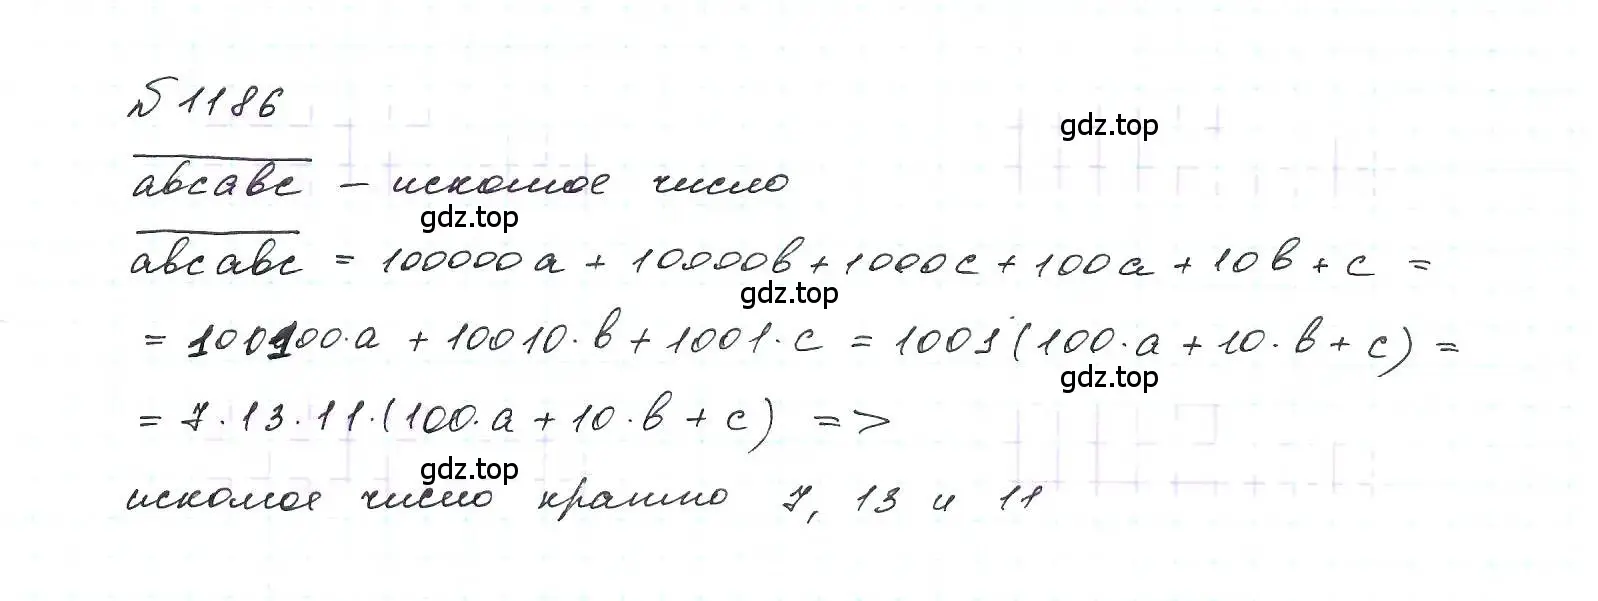 №1186
gdz.top
abcabc – искомое число
gdz.top
abcabc = 100000a + 10000b + 1000c + 100a + 10b + c =
gdz.top
= 100100·a + 10010·b + 1001·c = 1001(100·a + 10·b + c) =
gdz.top
= 7·13·11·(100·a + 10·b + c) =>
gdz.top
искомое число кратно 7, 13 и 11